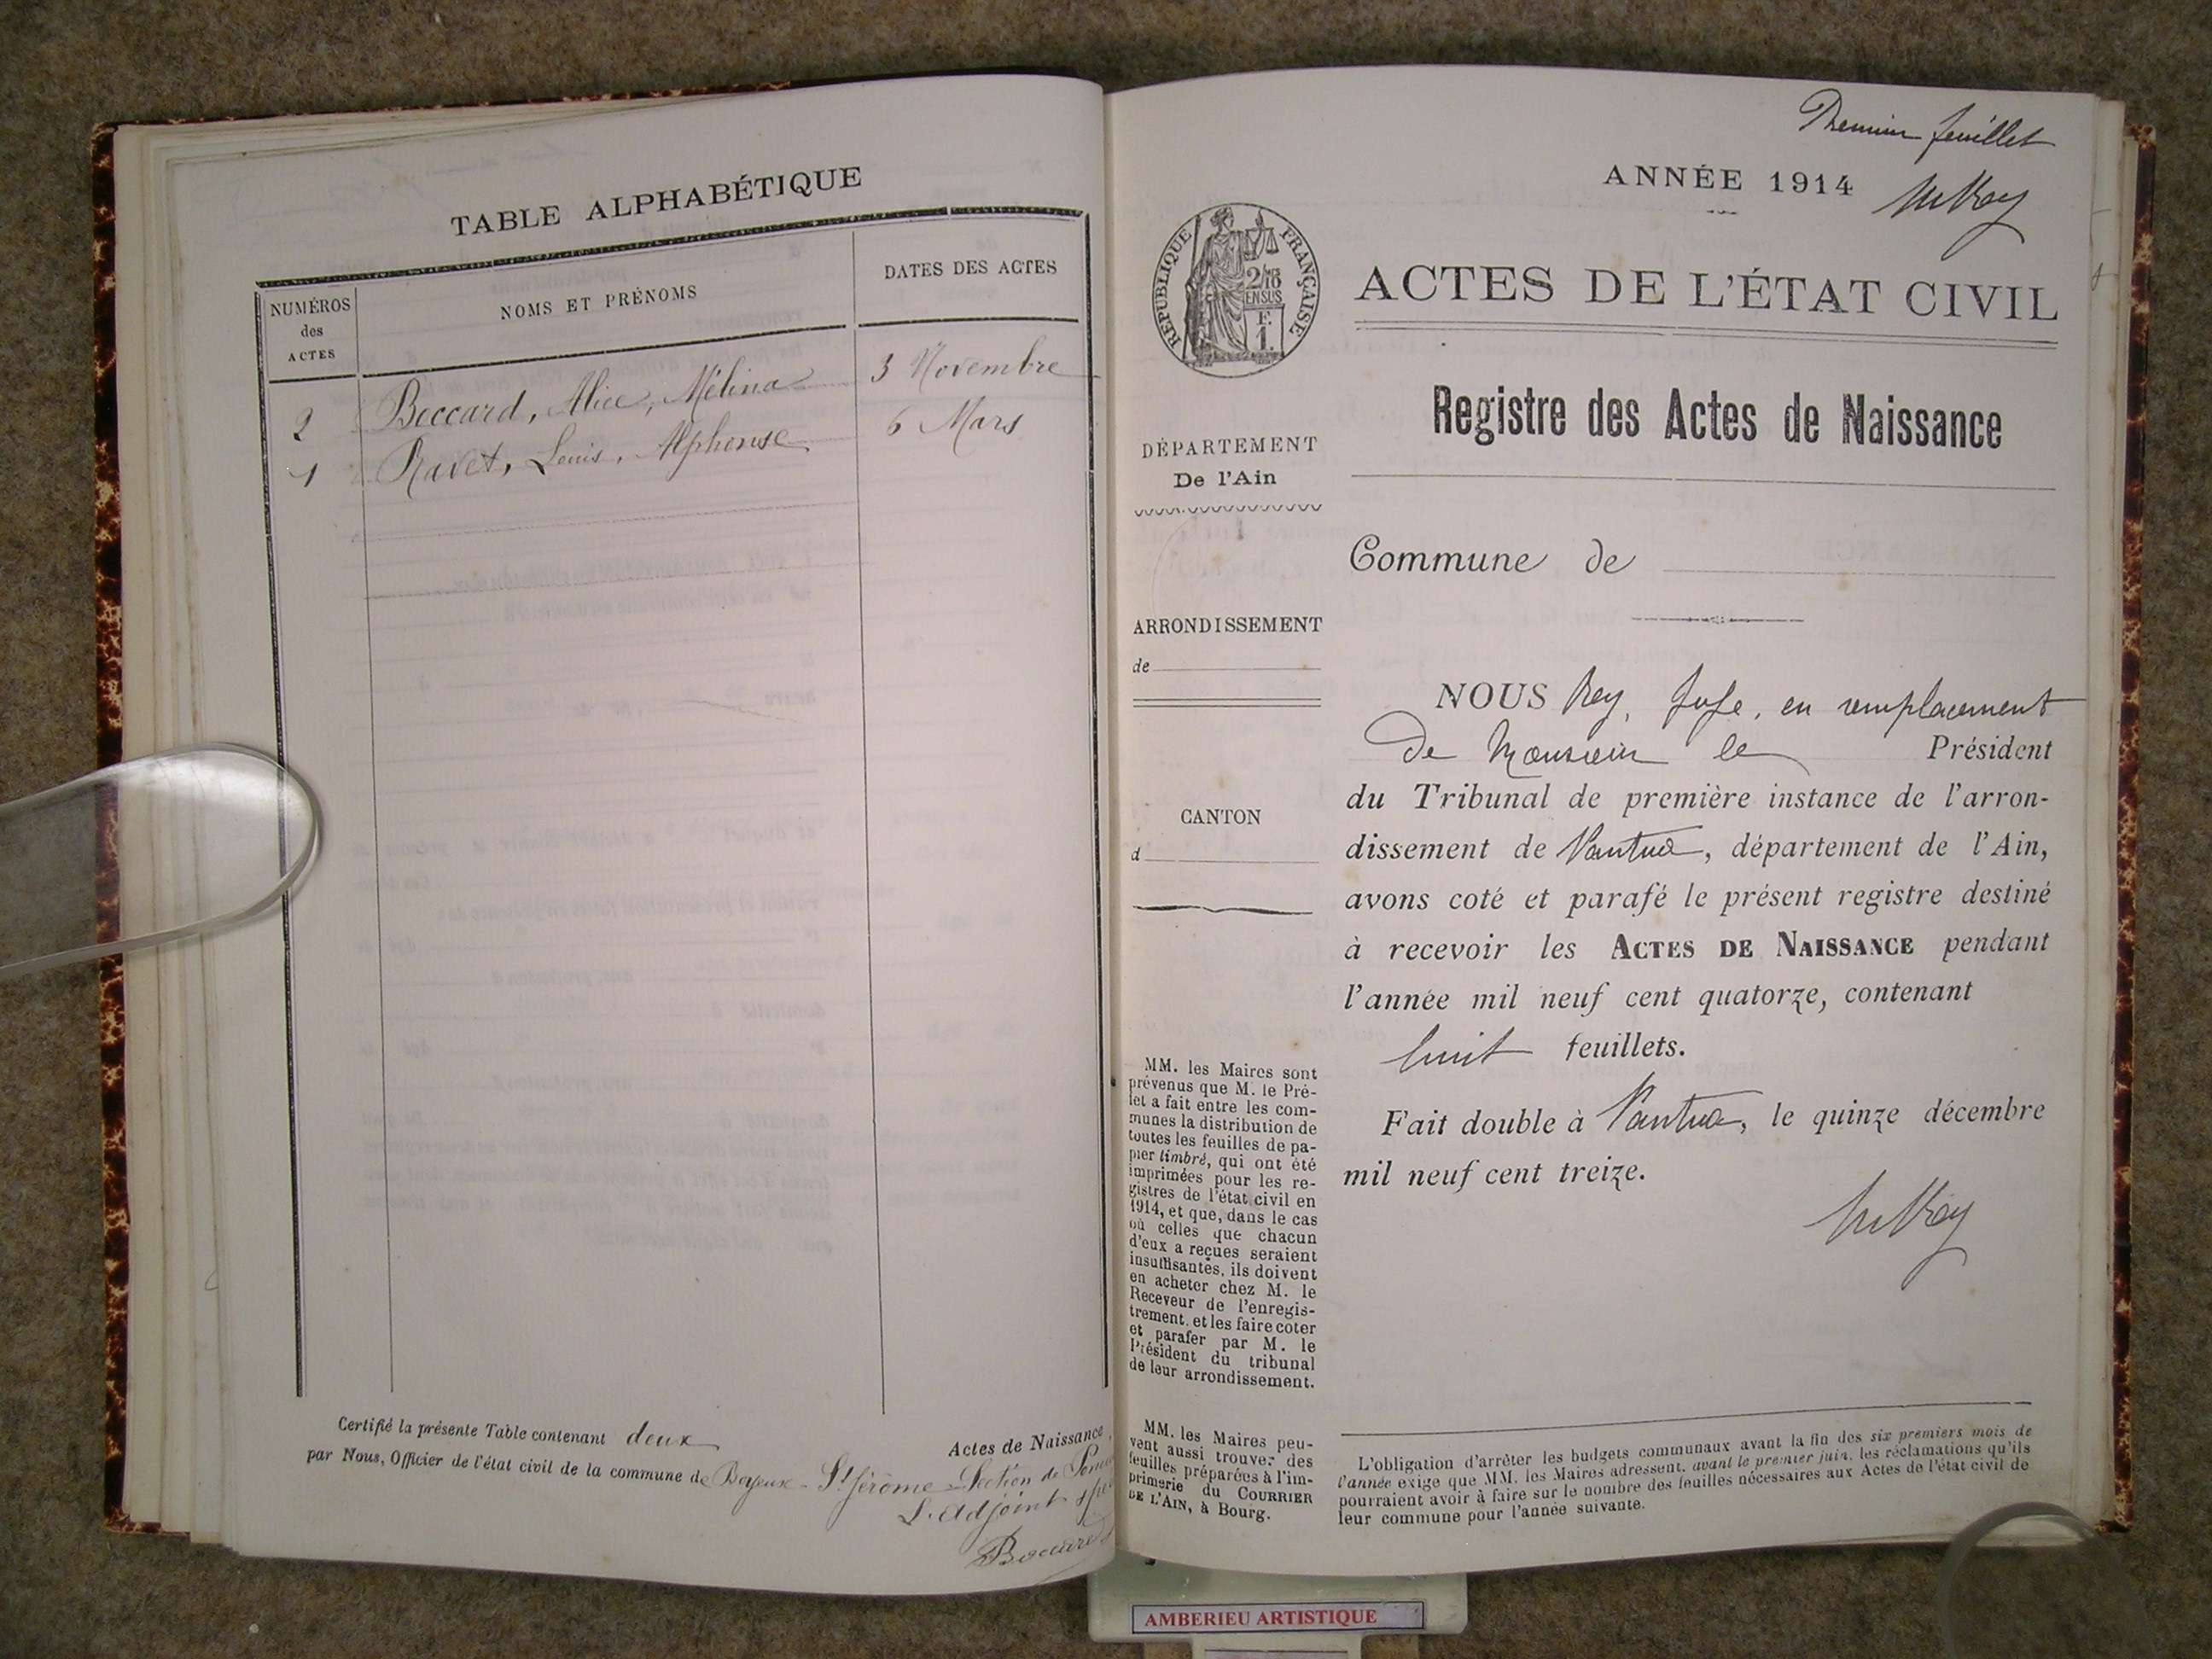 TABLE ALPHABÉTIQUE
NUMÉROS
des
ACTES
NOMS ET PRÉNOMS
DATES DES ACTES
2 Boccard, Alice, Mélina 3 Novembre
1 Ravet, Louis, Alphonse 6 Mars
Certifié la présente Table contenant deux Actes de Naissance,
par Nous, Officier de l'état civil de la commune de Boyeux-St Jérôme Section de
L'Adjoint
Boccard
Premier feuillet
ANNÉE 1914
RÉPUBLIQUE FRANÇAISE
2/10
EN SUS
F.
1.
ACTES DE L'ÉTAT CIVIL
Registre des Actes de Naissance
DÉPARTEMENT
De l'Ain
Commune de
ARRONDISSEMENT
de
CANTON
d
NOUS Rey, Juge, en remplacement
de Monsieur le Président
du Tribunal de première instance de l'arron-
dissement de Nantua, département de l'Ain,
avons coté et parafé le présent registre destiné
à recevoir les ACTES DE NAISSANCE pendant
l'année mil neuf cent quatorze, contenant
huit feuillets.
Fait double à Nantua, le quinze décembre
mil neuf cent treize.
MM. les Maires sont
prévenus que M. le Pré-
fet a fait entre les com-
munes la distribution de
toutes les feuilles de pa-
pier timbré, qui ont été
imprimées pour les re-
gistres de l'état civil en
1914, et que, dans le cas
où celles que chacun
d'eux a reçues seraient
insuffisantes, ils doivent
en acheter chez M. le
Receveur de l'enregis-
trement, et les faire coter
et parafer par M. le
Président du tribunal
de leur arrondissement.
MM. les Maires peu-
vent aussi trouver des
feuilles préparées à l'im-
primerie du COURRIER
DE L'AIN, à Bourg.
L'obligation d'arrêter les budgets communaux avant la fin des six premiers mois de
l'année exige que MM. les Maires adressent, avant le premier juin, les réclamations qu'ils
pourraient avoir à faire sur le nombre des feuilles nécessaires aux Actes de l'état civil de
leur commune pour l'année suivante.
AMBERIEU ARTISTIQUE